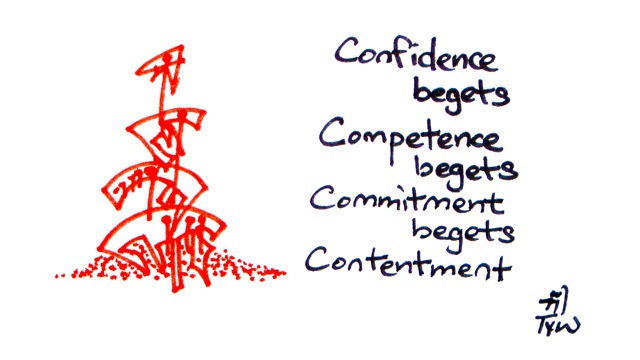 Confidence
begets
Competence
begets
Commitment
begets
Contentment
TXW